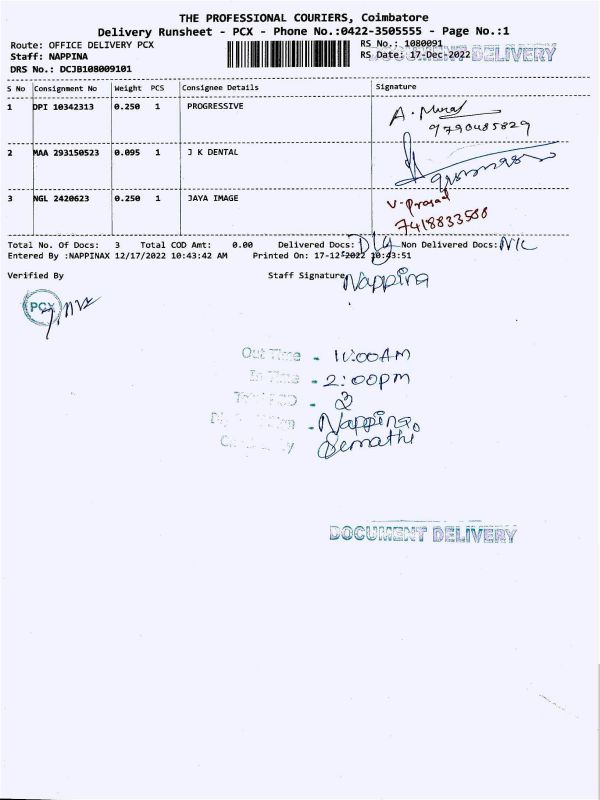 THE PROFESSIONAL COURIERS, Coimbatore
Delivery Runsheet - PCX - Phone No.:0422-3505555 - Page No.:1
Route: OFFICE DELIVERY PCX
Staff: NAPPINA
DRS No.: DCJB108009101
RS No.: 1080091
RS Date: 17-Dec-2022
DOCUMENT DELIVERY
S No Consignment No Weight PCS Consignee Details Signature
1 DPI 10342313 0.250 1 PROGRESSIVE
A. Murali
9790485829
2 MAA 293150523 0.095 1 J K DENTAL
3 NGL 2420623 0.250 1 JAYA IMAGE
V. Prasad
7418833588
Total No. Of Docs: 3 Total COD Amt: 0.00 Delivered Docs: Dly Non Delivered Docs: NIL
Entered By :NAPPINAX 12/17/2022 10:43:42 AM Printed On: 17-12-2022 10:43:51
Verified By Staff Signature Nappina
PCX
Out Time - 11:00AM
In Time - 2:00pm
- 3
- Nappina
DOCUMENT DELIVERY